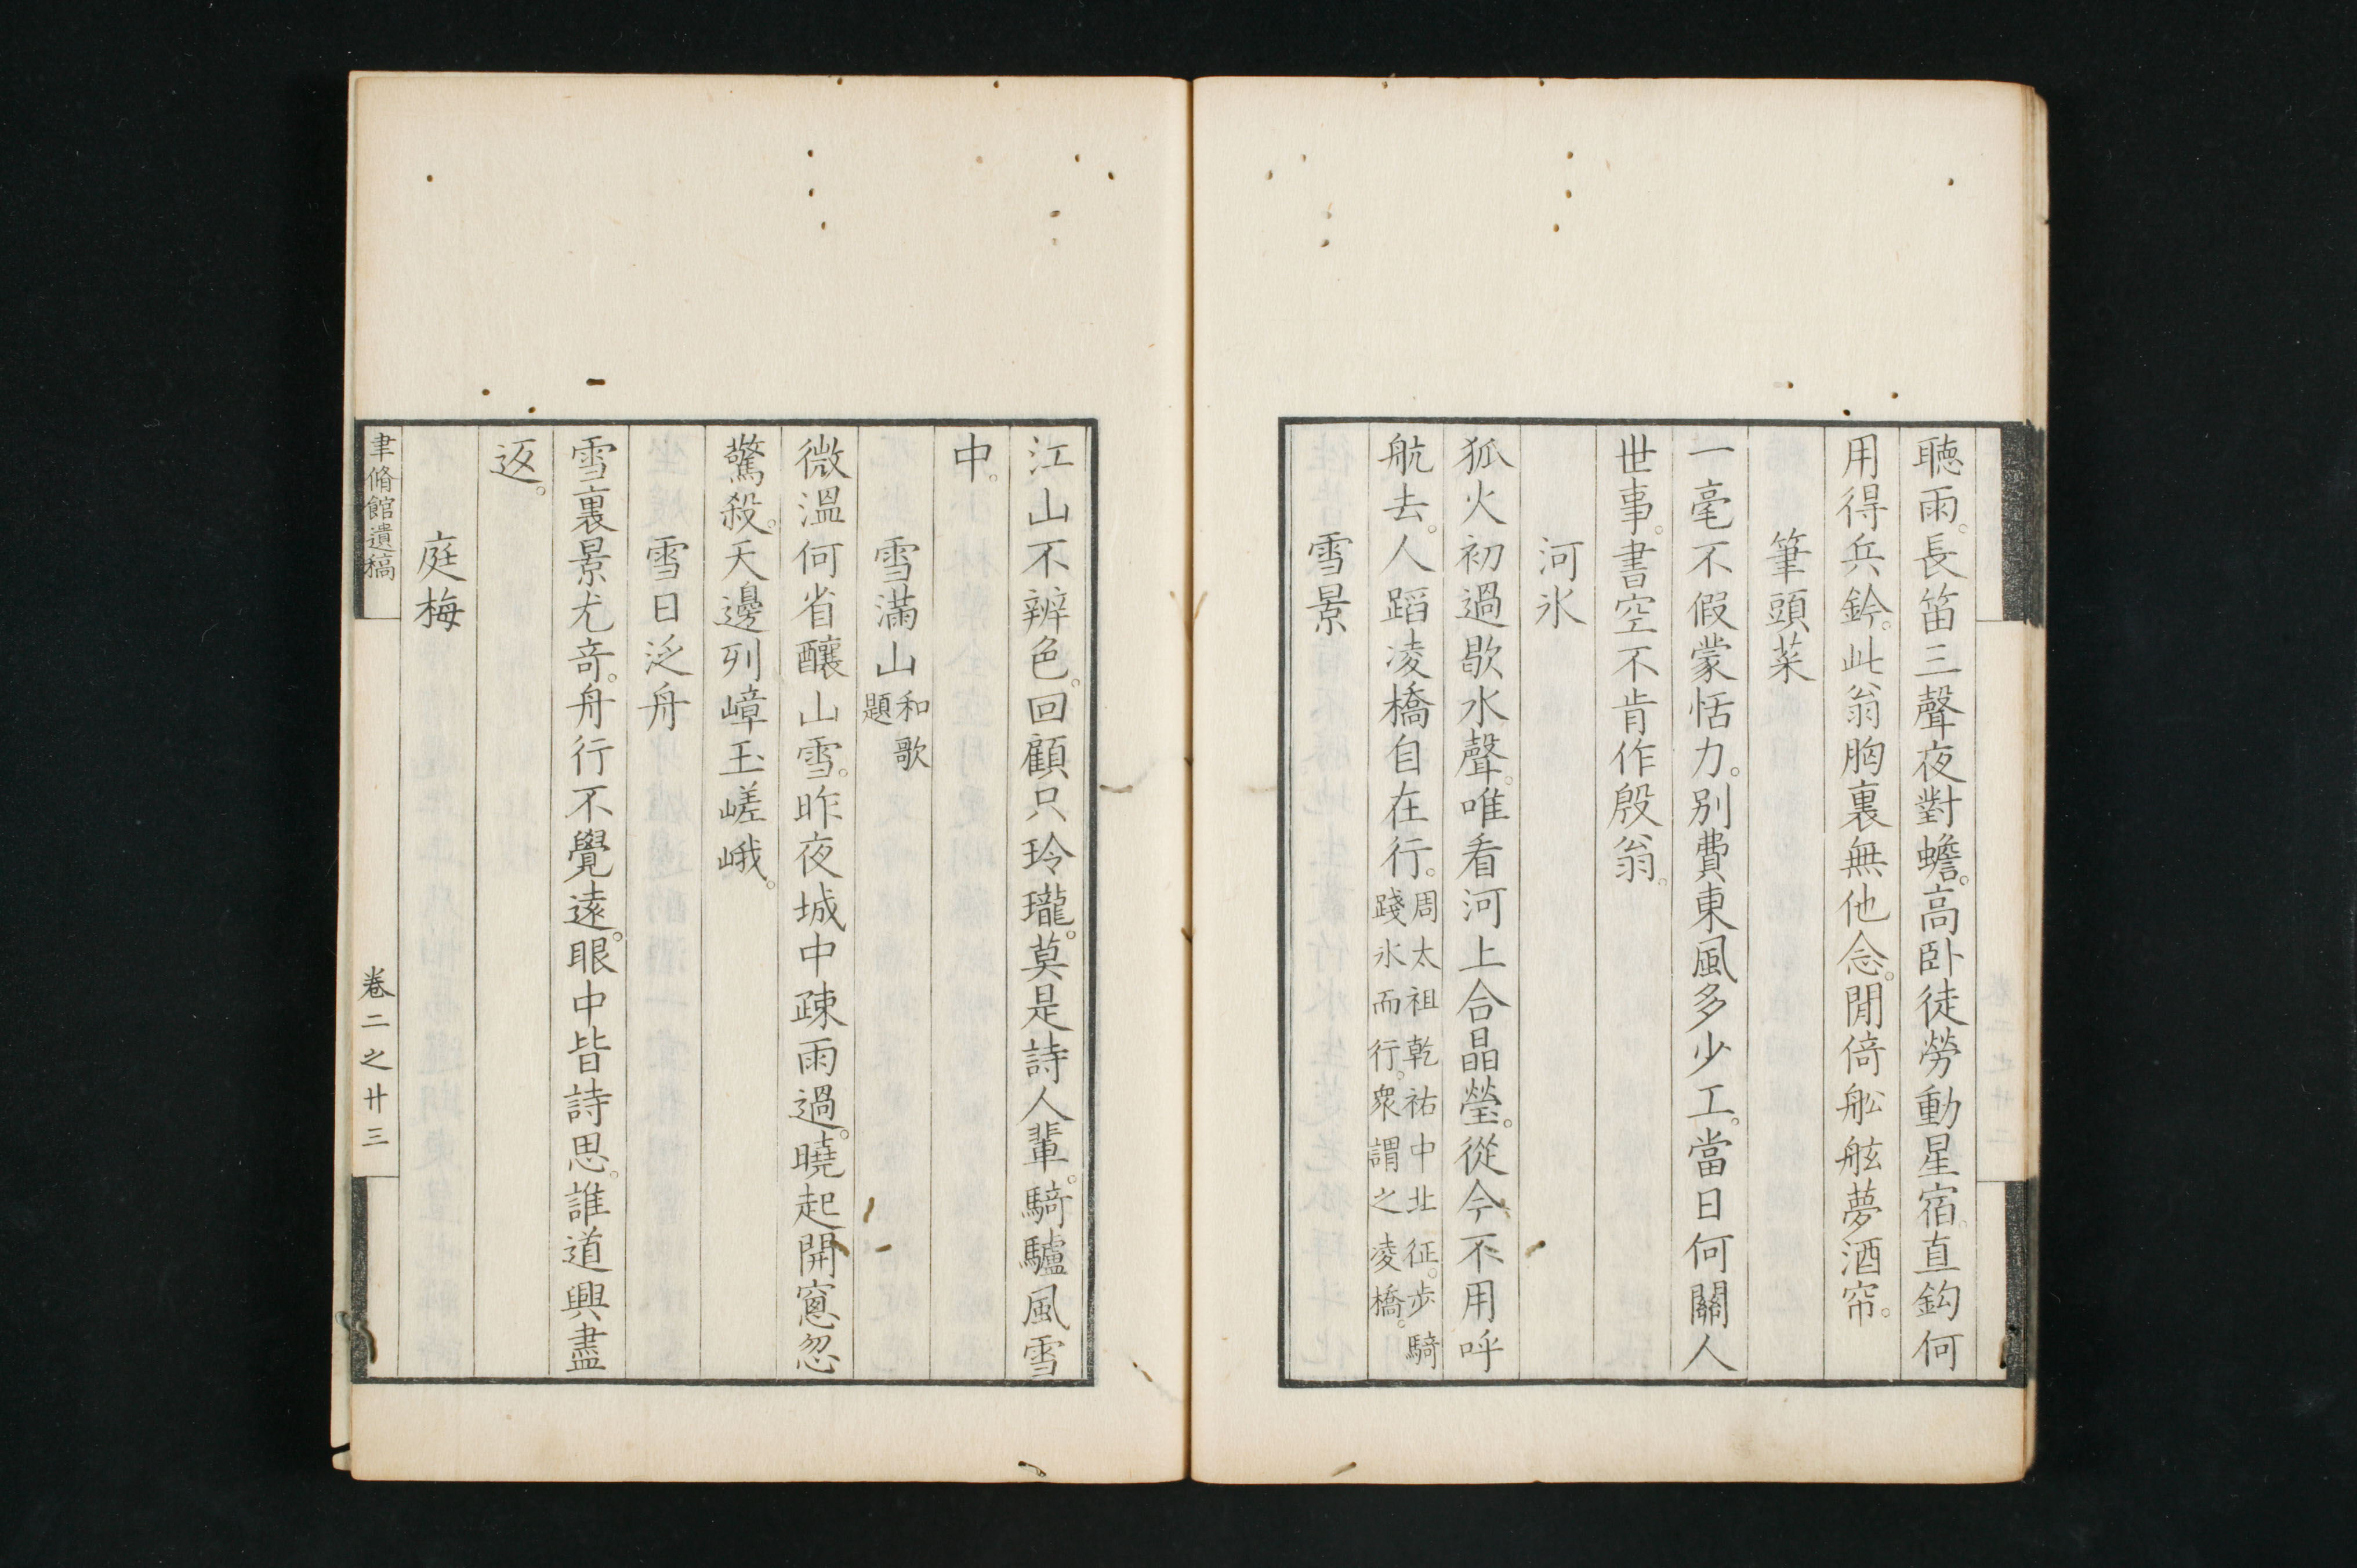 聴雨。長笛三聲夜對蟾。高臥徒勞動星宿。直鈎何
用得兵鈐。此翁胸裏無他念。閒倚舩舷夢酒帘。
筆頭菜
一毫不假蒙恬力。別費東風多少工。當日何關人
世事。書空不肯作殷翁。
河氷
狐火初過歇水聲。唯看河上合晶瑩。從今不用呼
航去。人蹈凌橋自在行。周太祖乾祐中北征。步騎
踐氷而行。衆謂之凌橋。
雪景
江山不辨色。回顧只玲瓏。莫是詩人輩。騎驢風雪
中。
雪滿山和歌
題
微溫何省釀山雪。昨夜城中疎雨過。曉起開窓忽
驚殺。天邊列嶂玉嵯峨。
雪日泛舟
雪裏景尤奇。舟行不覺遠。眼中皆詩思。誰道興盡
返。
庭梅
聿脩館遺稿
卷二之廿三